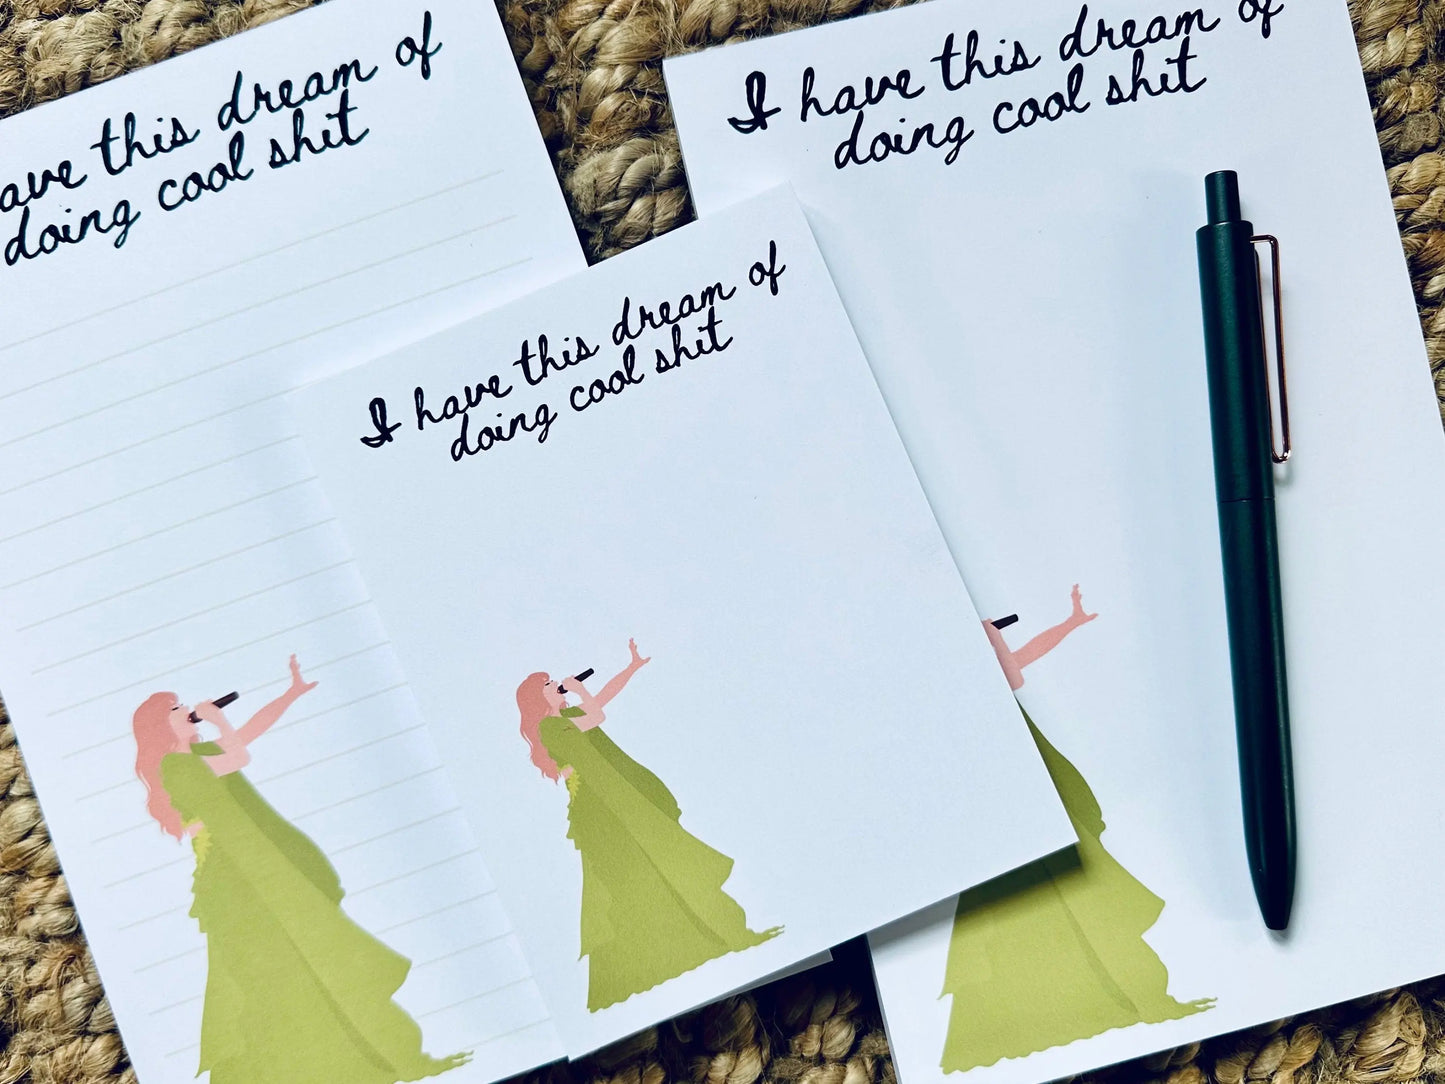 ave this dream of
doing cool shit
I have this dream of
doing cool shit
I have this dream of
doing cool shit